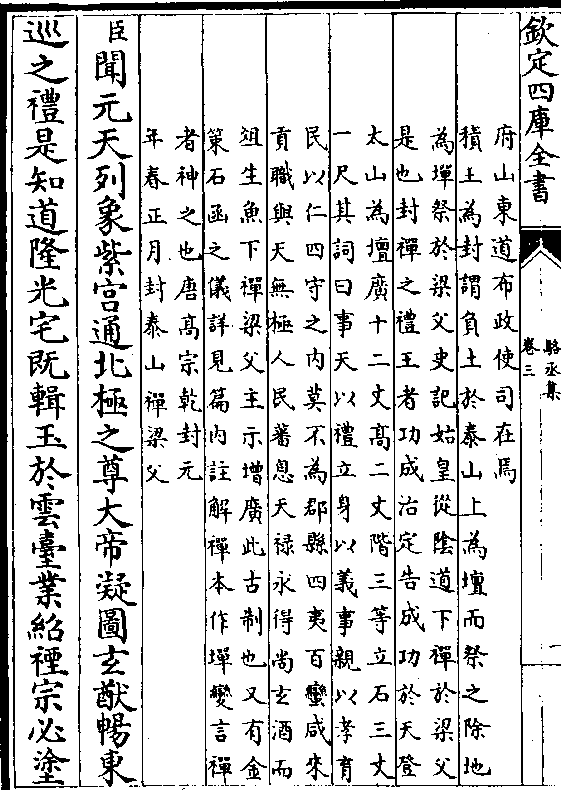 欽定四庫全書
駱丞集
卷三
府山東道布政使司在焉
積土為封謂負土於泰山上為壇而祭之除地
為墠祭於梁父史記始皇從陰道下禪於梁父
是也封禪之禮王者功成治定告成功於天登
太山為壇廣十二丈高二丈階三等立石三丈
一尺其詞曰事天以禮立身以義事親以孝育
民以仁四守之内莫不為郡縣四夷百蠻咸來
貢職與天無極人民蕃息天禄永得尚玄酒而
俎生魚下禪梁父主示增廣此古制也又有金
策石函之儀詳見篇内註解禪本作墠變言禪
者神之也唐高宗乾封元
年春正月封泰山禪梁父
臣聞元天列象紫宫通北極之尊大帝凝圖玄猷暢東
巡之禮是知道隆光宅既輯玉於雲臺業紹禋宗必塗